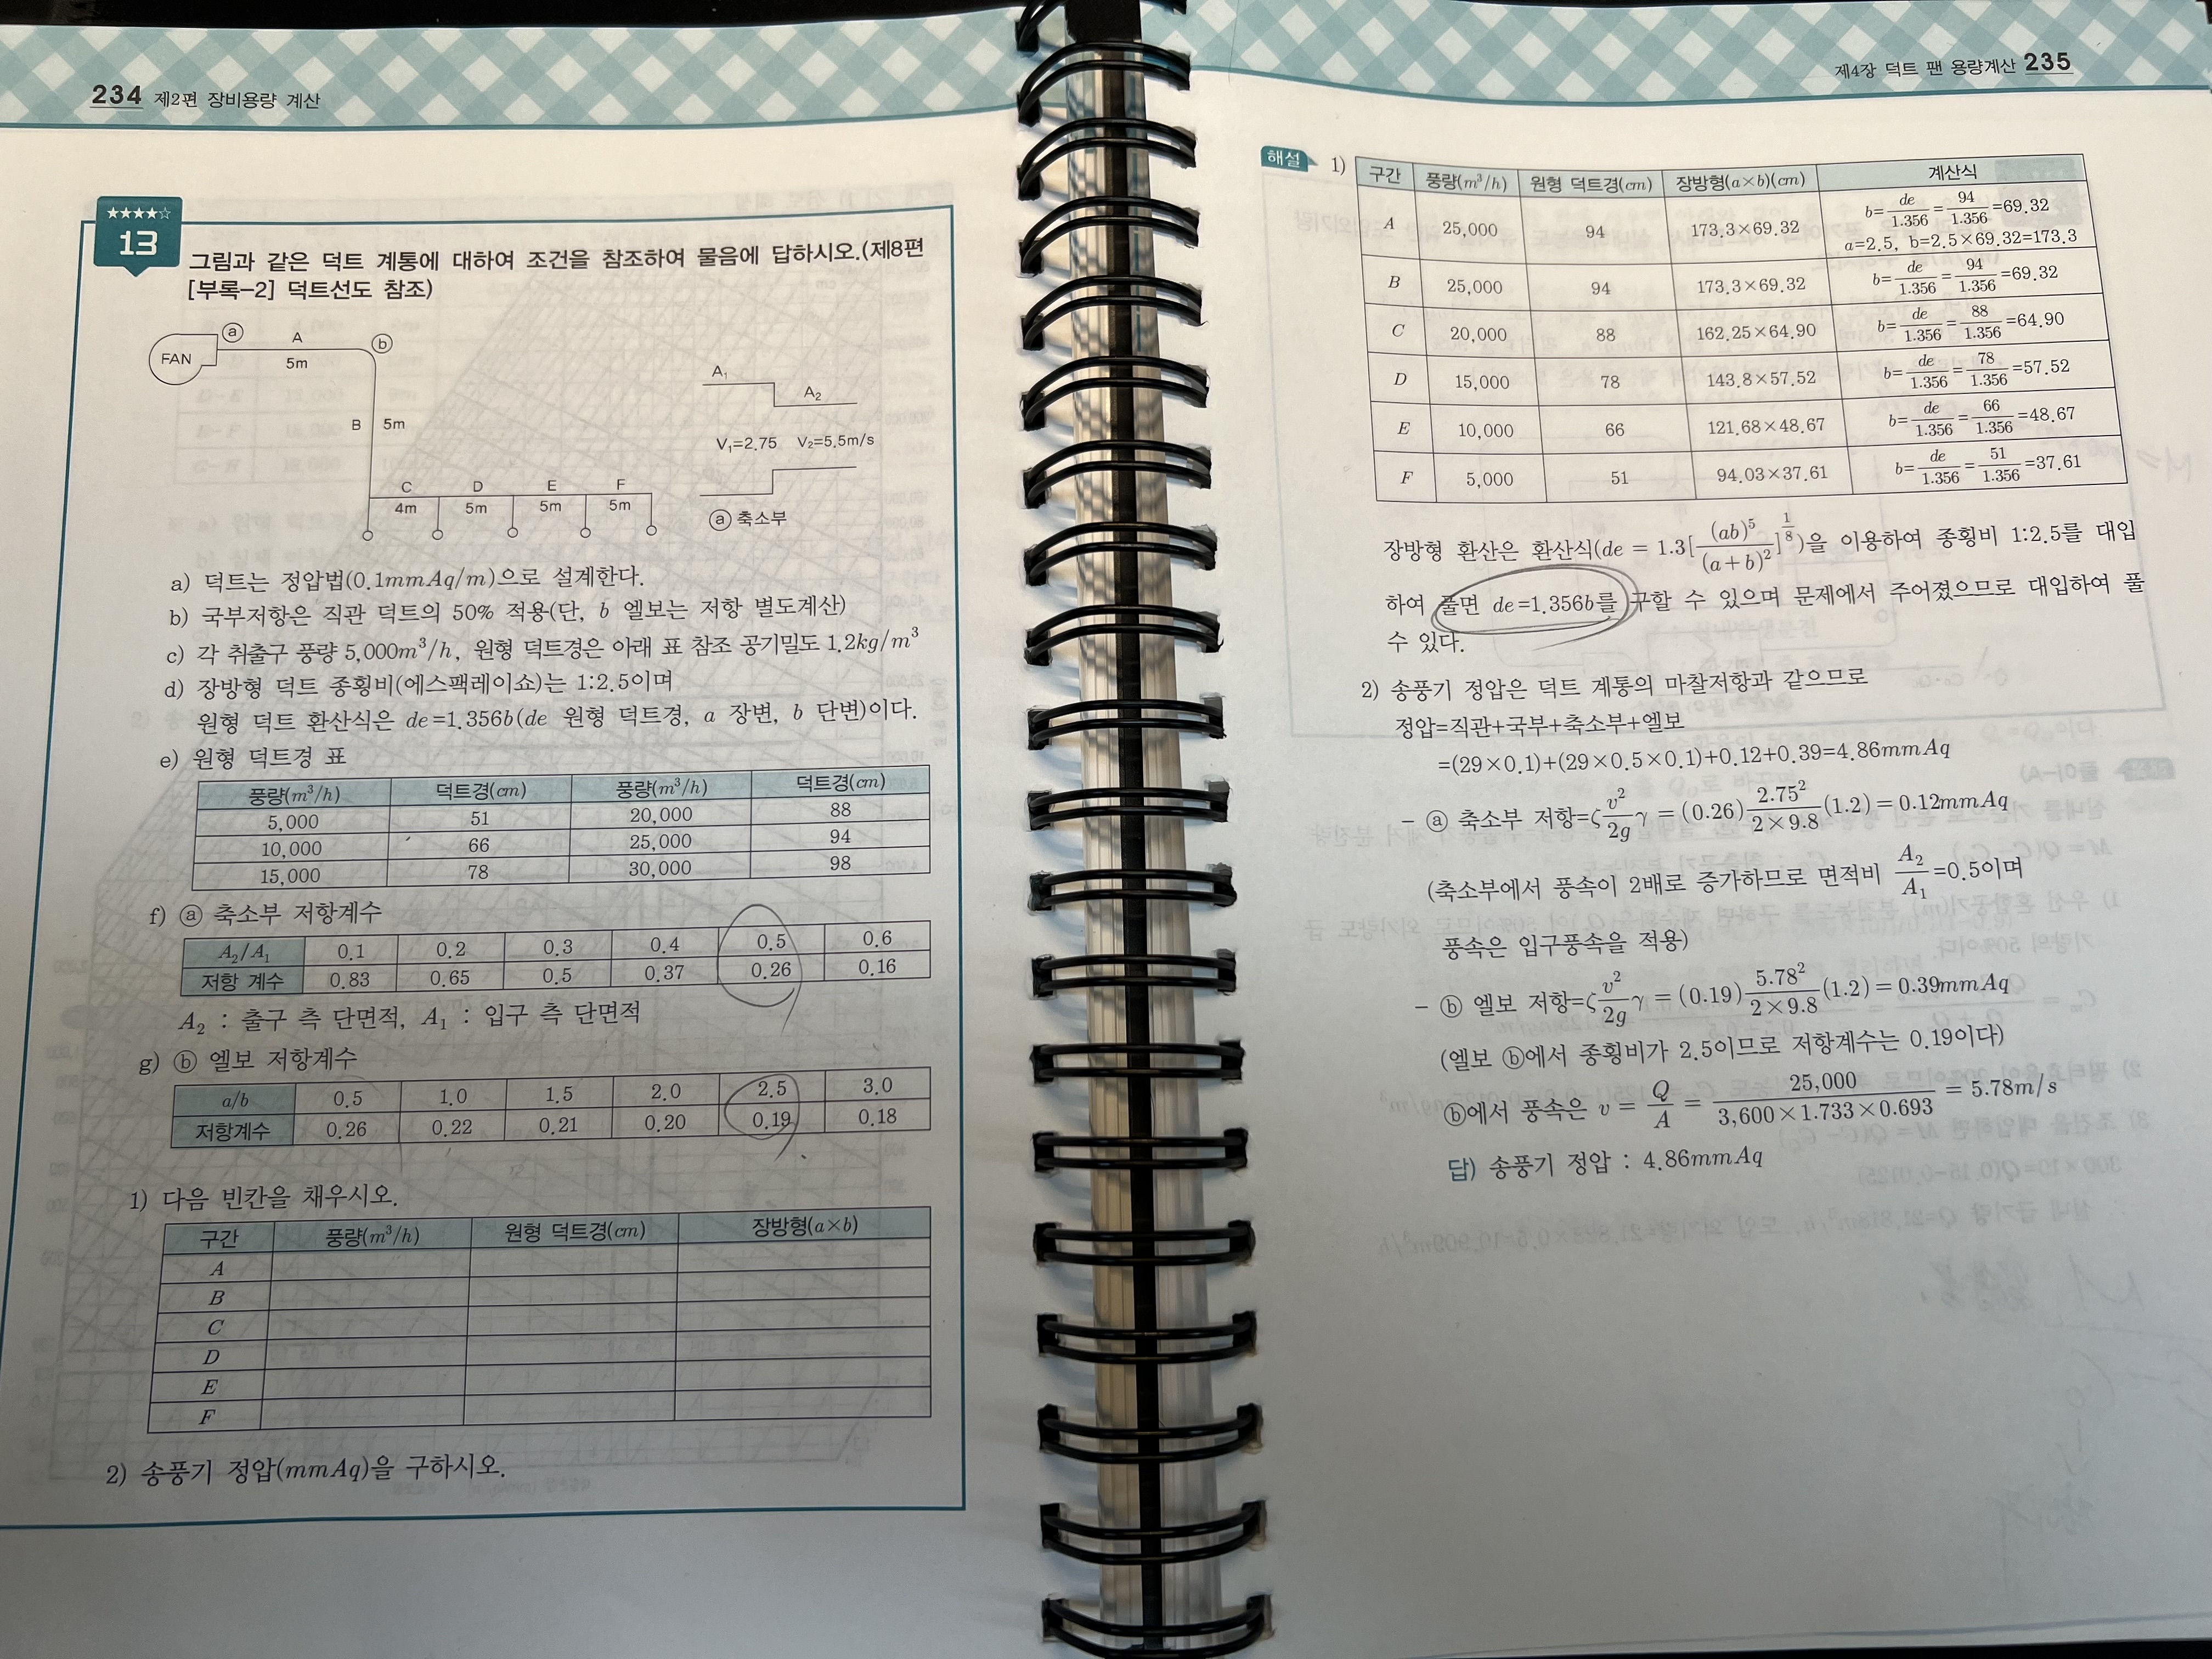 234 제2편 장비용량 계산
★★★★☆
13
그림과 같은 덕트 계통에 대하여 조건을 참조하여 물음에 답하시오.(제8편
[부록-2] 덕트선도 참조)
FAN ⓐ A 5m ⓑ
B 5m
C D E F
4m 5m 5m 5m
A₁ A₂
V₁=2.75 V₂=5.5m/s
ⓐ 축소부
a) 덕트는 정압법(0.1mmAq/m)으로 설계한다.
b) 국부저항은 직관 덕트의 50% 적용(단, b 엘보는 저항 별도계산)
c) 각 취출구 풍량 5,000m³/h, 원형 덕트경은 아래 표 참조 공기밀도 1.2kg/m³
d) 장방형 덕트 종횡비(에스팩레이쇼)는 1:2.5이며
원형 덕트 환산식은 de=1.356b(de 원형 덕트경, a 장변, b 단변)이다.
e) 원형 덕트경 표
풍량(m³/h) 덕트경(cm) 풍량(m³/h) 덕트경(cm)
5,000 51 20,000 88
10,000 66 25,000 94
15,000 78 30,000 98
f) ⓐ 축소부 저항계수
A₂/A₁ 0.1 0.2 0.3 0.4 0.5 0.6
저항 계수 0.83 0.65 0.5 0.37 0.26 0.16
A₂ : 출구 측 단면적, A₁ : 입구 측 단면적
g) ⓑ 엘보 저항계수
a/b 0.5 1.0 1.5 2.0 2.5 3.0
저항계수 0.26 0.22 0.21 0.20 0.19 0.18
1) 다음 빈칸을 채우시오.
구간 풍량(m³/h) 원형 덕트경(cm) 장방형(a×b)
A
B
C
D
E
F
2) 송풍기 정압(mmAq)을 구하시오.
제4장 덕트 팬 용량계산 235
해설 1)
구간 풍량(m³/h) 원형 덕트경(cm) 장방형(a×b)(cm) 계산식
A 25,000 94 173.3×69.32 b=de/1.356=94/1.356=69.32
a=2.5, b=2.5×69.32=173.3
B 25,000 94 173.3×69.32 b=de/1.356=94/1.356=69.32
C 20,000 88 162.25×64.90 b=de/1.356=88/1.356=64.90
D 15,000 78 143.8×57.52 b=de/1.356=78/1.356=57.52
E 10,000 66 121.68×48.67 b=de/1.356=66/1.356=48.67
F 5,000 51 94.03×37.61 b=de/1.356=51/1.356=37.61
장방형 환산은 환산식(de = 1.3[(ab)⁵/(a+b)²]^(1/8))을 이용하여 종횡비 1:2.5를 대입
하여 풀면 de=1.356b를 구할 수 있으며 문제에서 주어졌으므로 대입하여 풀
수 있다.
2) 송풍기 정압은 덕트 계통의 마찰저항과 같으므로
정압=직관+국부+축소부+엘보
=(29×0.1)+(29×0.5×0.1)+0.12+0.39=4.86mmAq
- ⓐ 축소부 저항=ζ v²/2g γ = (0.26) 2.75²/2×9.8 (1.2) = 0.12mmAq
(축소부에서 풍속이 2배로 증가하므로 면적비 A₂/A₁=0.5이며
풍속은 입구풍속을 적용)
- ⓑ 엘보 저항=ζ v²/2g γ = (0.19) 5.78²/2×9.8 (1.2) = 0.39mmAq
(엘보 ⓑ에서 종횡비가 2.5이므로 저항계수는 0.19이다)
ⓑ에서 풍속은 v = Q/A = 25,000/3,600×1.733×0.693 = 5.78m/s
답) 송풍기 정압 : 4.86mmAq